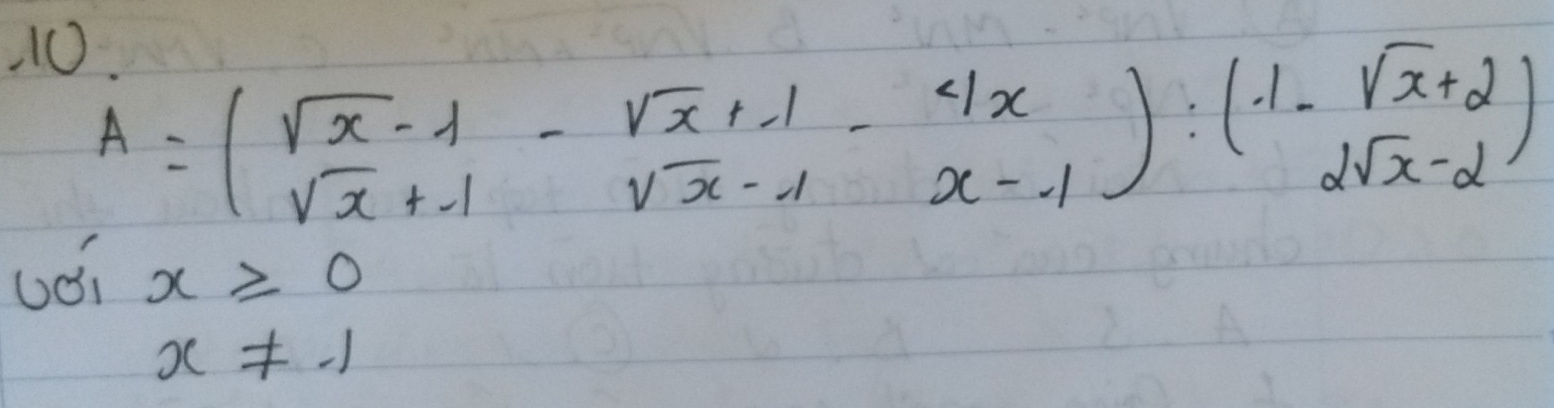 10.
A = ( √x - 1 / √x + 1 - √x + 1 / √x - 1 - 4x / x - 1 ) : ( 1 - √x + 2 / 2√x - 2 )
với x ≥ 0
x ≠ 1